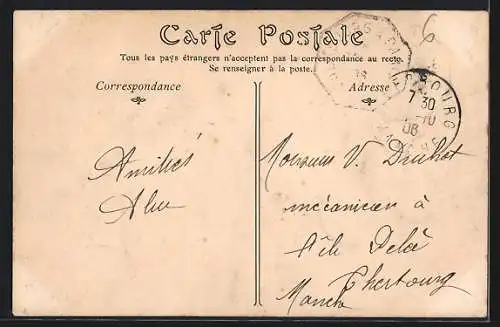 Carte Postale
Tous les pays étrangers n'acceptent pas la correspondance au recto.
Se renseigner à la poste.
Correspondance
Adresse
6
BOURG
7 30
10
08
MANCHE
Amitiés
Monsieur V.
mécanicien à
l'île
Cherbourg
Manche